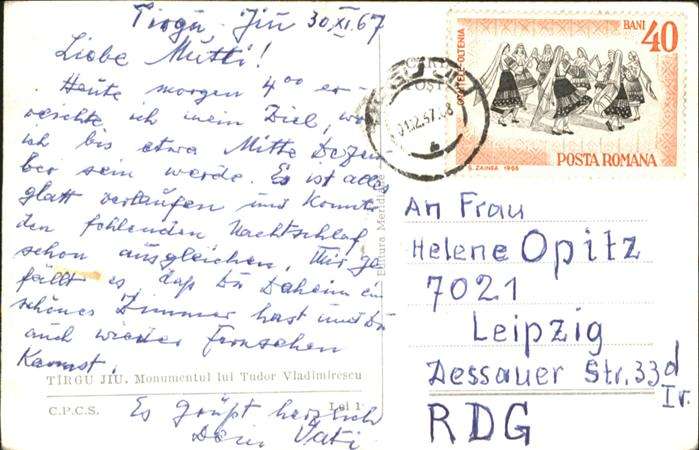 Tirgu, Jiu 30.XI.67
Liebe Mutti!
Heute morgen 4°° er-
reichte ich mein Ziel, wo
ich bis etwa Mitte Dezem
ber sein werde. Es ist alles
glatt verlaufen und konnte
den fehlenden Nachtschlaf
schon ausgleichen. Mir ge
fällt es, daß Du Daheim ein
schönes Zimmer hast und Du
auch wieder Fernsehen
kannst.
Es grüßt herzlich
Dein Vati
TÎRGU JIU. Monumentul lui Tudor Vladimirescu
C.P.C.S. Lei 1
Editura Meridiane
BANI 40
POSTA ROMANA
S. ZAINEA 1966
An Frau
Helene Opitz
7021
Leipzig
Dessauer Str. 33d
Ir.
RDG